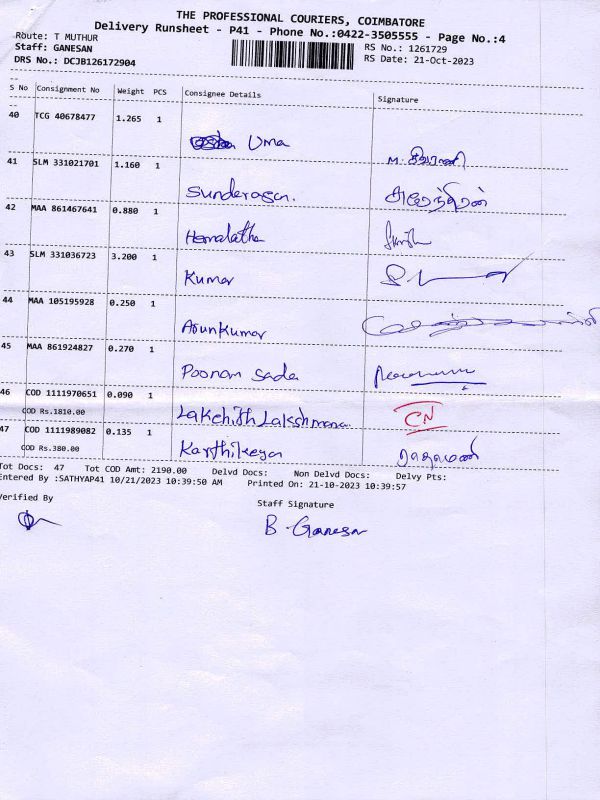 THE PROFESSIONAL COURIERS, COIMBATORE
Delivery Runsheet - P41 - Phone No.:0422-3505555 - Page No.:4
Route: T MUTHUR
Staff: GANESAN
RS No.: 1261729
DRS No.: DCJB126172904
RS Date: 21-Oct-2023
S No Consignment No Weight PCS Consignee Details Signature
40 TCG 40678477 1.265 1
Uma
41 SLM 331021701 1.160 1
Sunderasan.
42 MAA 861467641 0.880 1
Hemalatha
43 SLM 331036723 3.200 1
Kumar
44 MAA 105195928 0.250 1
Arunkumar
45 MAA 861924827 0.270 1
Poonam Sada
46 COD 1111970651 0.090 1
COD Rs.1810.00 Lakchith Lakshmana CN
47 COD 1111989082 0.135 1
COD Rs.380.00 Karthikeya
Tot Docs: 47 Tot COD Amt: 2190.00 Delvd Docs: Non Delvd Docs: Delvy Pts:
Entered By :SATHYAP41 10/21/2023 10:39:50 AM Printed On: 21-10-2023 10:39:57
Verified By Staff Signature
B. Ganesan